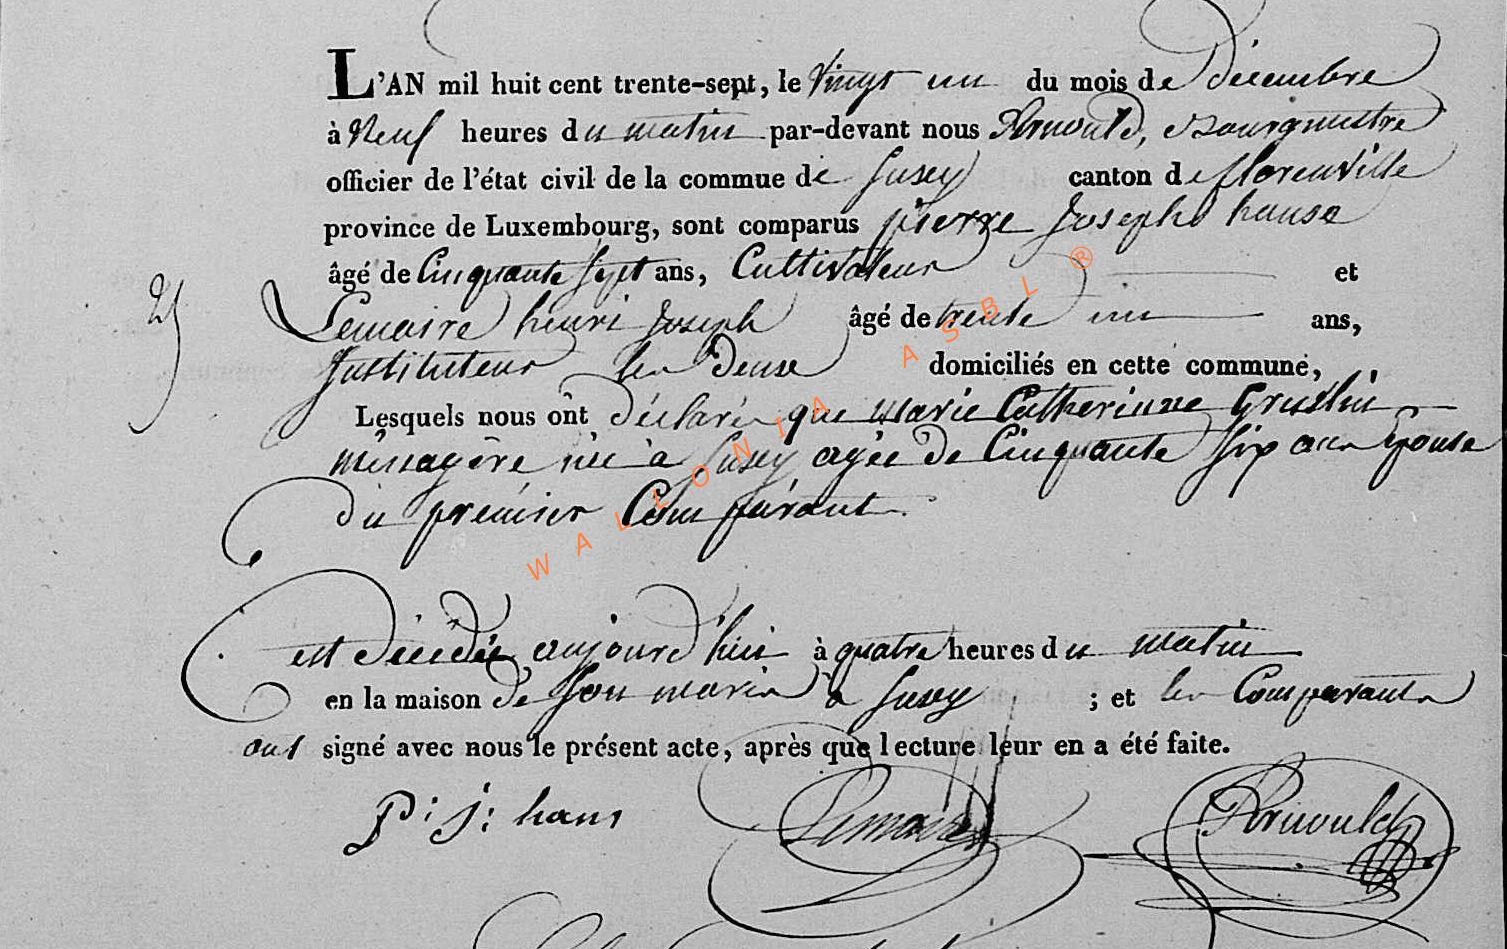 L'AN mil huit cent trente-sept, le vingt un du mois de décembre
à neuf heures du matin par-devant nous Arnould, Bourgmestre
officier de l'état civil de la commue de Jusey canton de florenville
province de Luxembourg, sont comparus pierre Joseph hansa
âgé de Cinquante sept ans, Cultivateur et
Lemaire henri Joseph âgé de trente un ans,
Instituteur les deux domiciliés en cette commune,
25
Lesquels nous ont déclaré que marie Catherinne Gruslin
ménagère née à Jusey agée de Cinquante six ans Epouse
du premier Comparant.
est décédée aujourd'hui à quatre heures du matin
en la maison de son maris à Jusey ; et les Comparants
ont signé avec nous le présent acte, après que lecture leur en a été faite.
P: J: hans Lemaire Arnould
WALLONIA ASBL ®